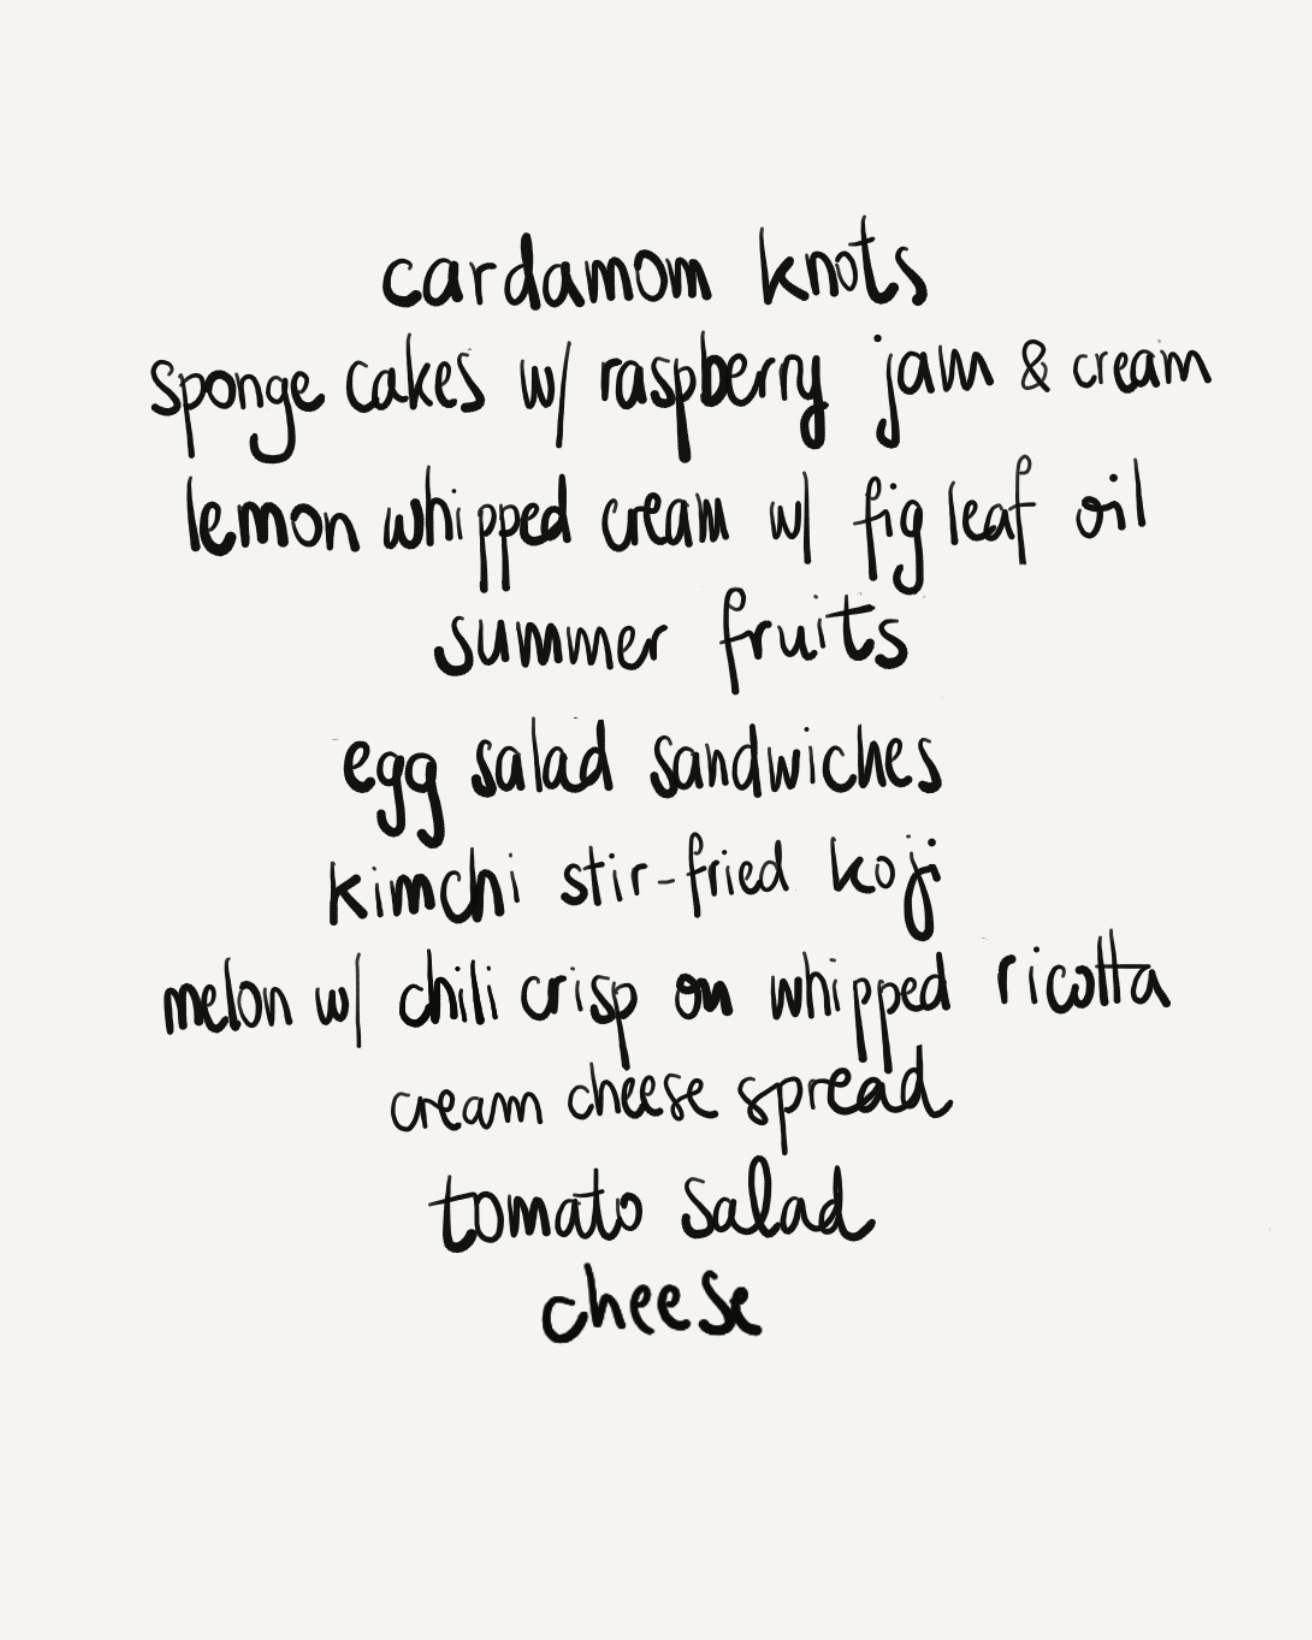 cardamom knots
sponge cakes w/ raspberry jam & cream
lemon whipped cream w/ fig leaf oil
summer fruits
egg salad sandwiches
kimchi stir-fried koji
melon w/ chili crisp on whipped ricotta
cream cheese spread
tomato salad
cheese